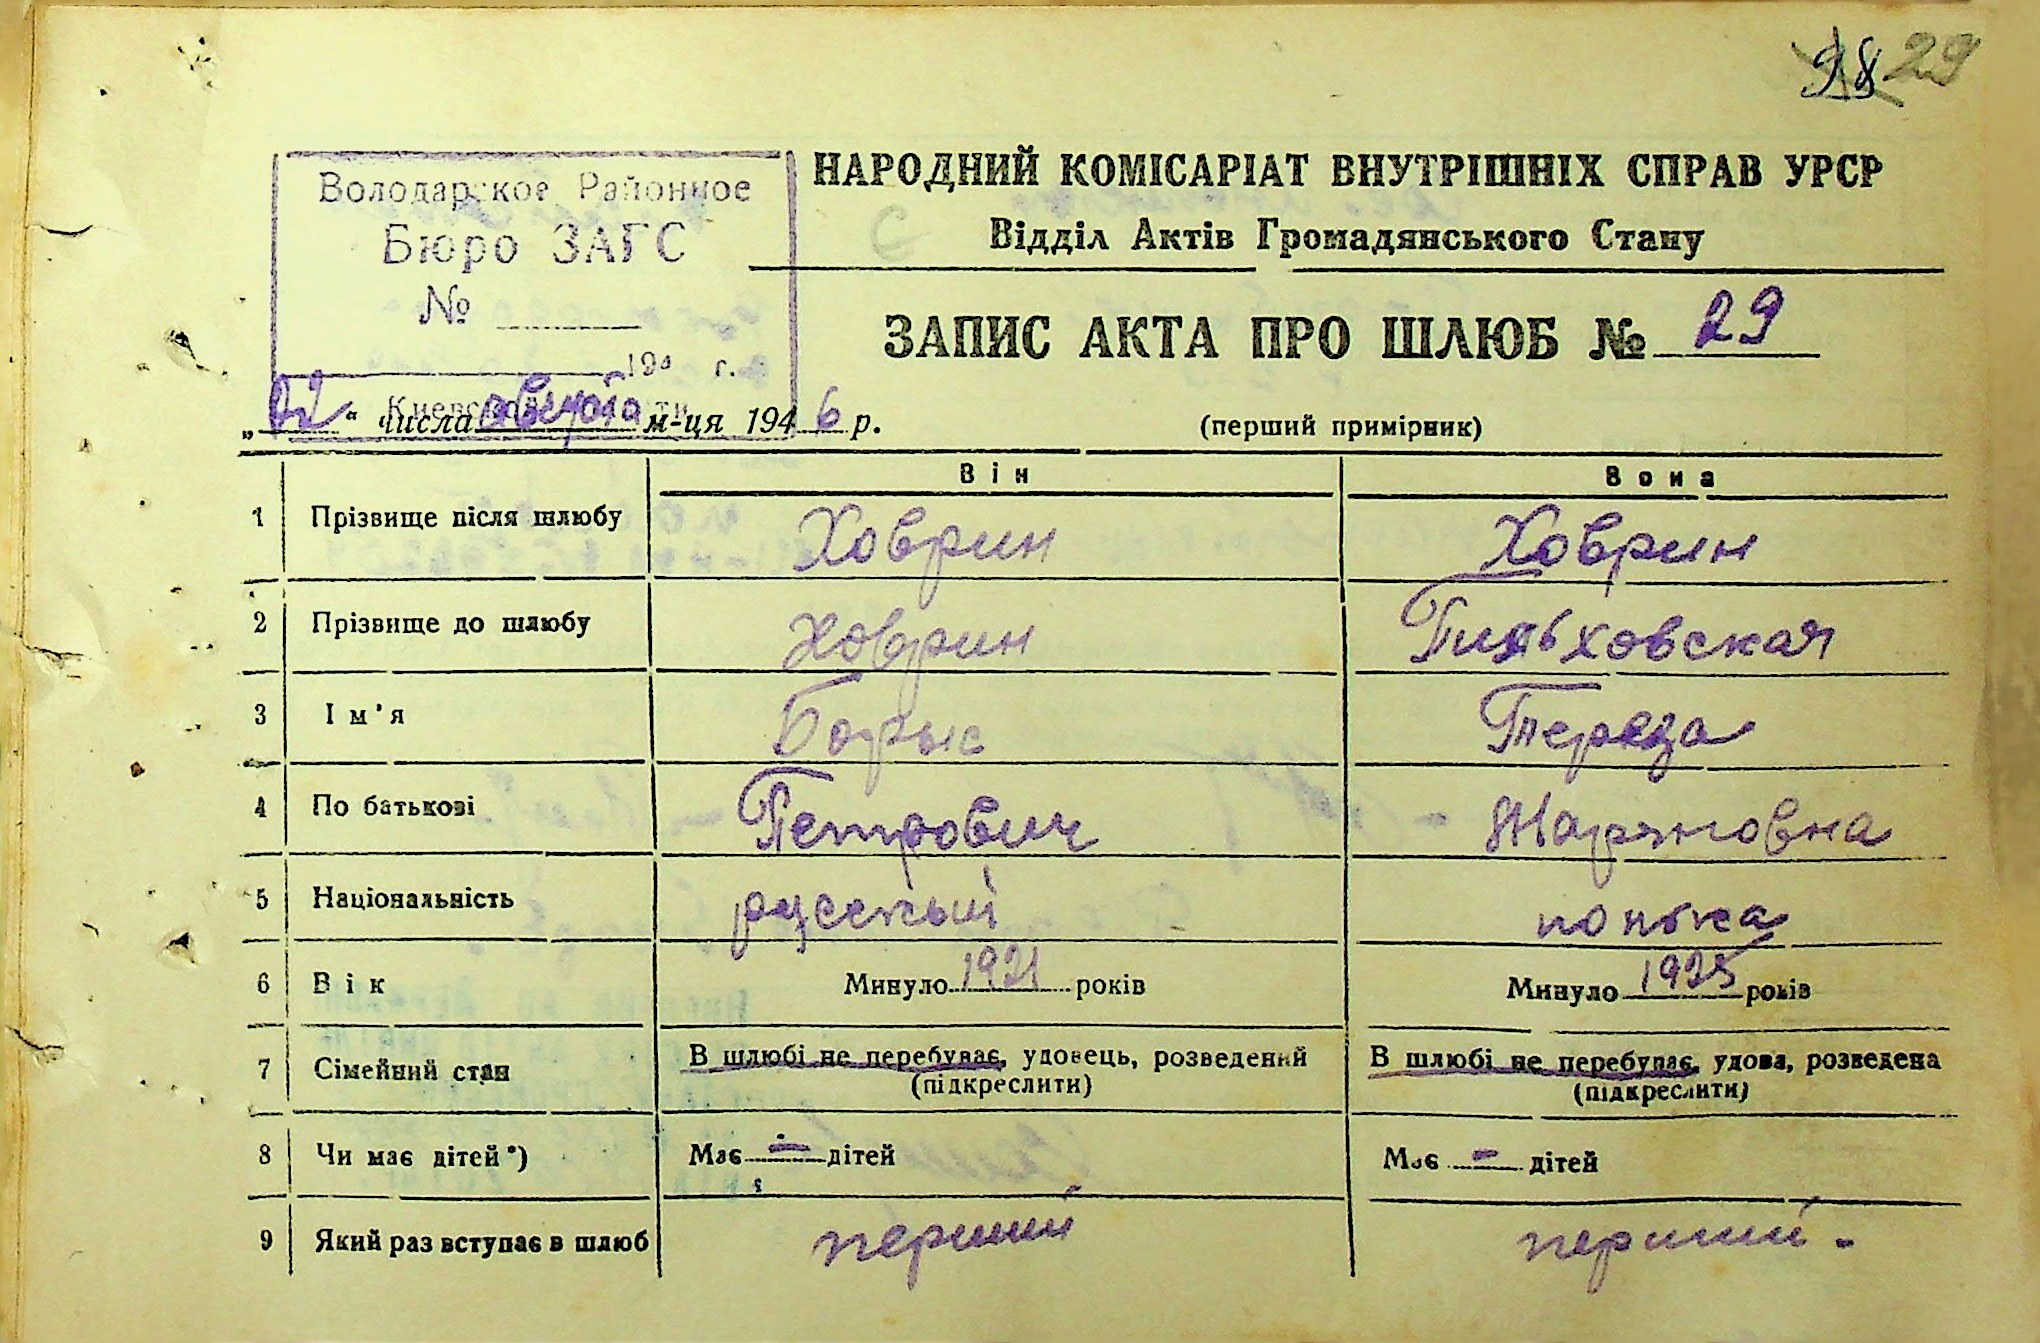 98 29
Володарское Районное
Бюро ЗАГС
№
194 г.
Киевской
НАРОДНИЙ КОМІСАРІАТ ВНУТРІШНІХ СПРАВ УРСР
Відділ Актів Громадянського Стану
ЗАПИС АКТА ПРО ШЛЮБ № 29
„22" числа августа м-ця 1946 р.
(перший примірник)
Він Вона
1 Прізвище після шлюбу Ховрин Ховрин
2 Прізвище до шлюбу Ховрин
3 Ім'я Борис Тереза
4 По батькові Петрович Марьяновна
5 Національність русский полька
6 Вік Минуло 1921 років Минуло 1925 років
7 Сімейний стан В шлюбі не перебуває, удовець, розведений В шлюбі не перебуває, удова, розведена
(підкреслити) (підкреслити)
8 Чи має дітей*) Має - дітей Має - дітей
9 Який раз вступає в шлюб перший перший -